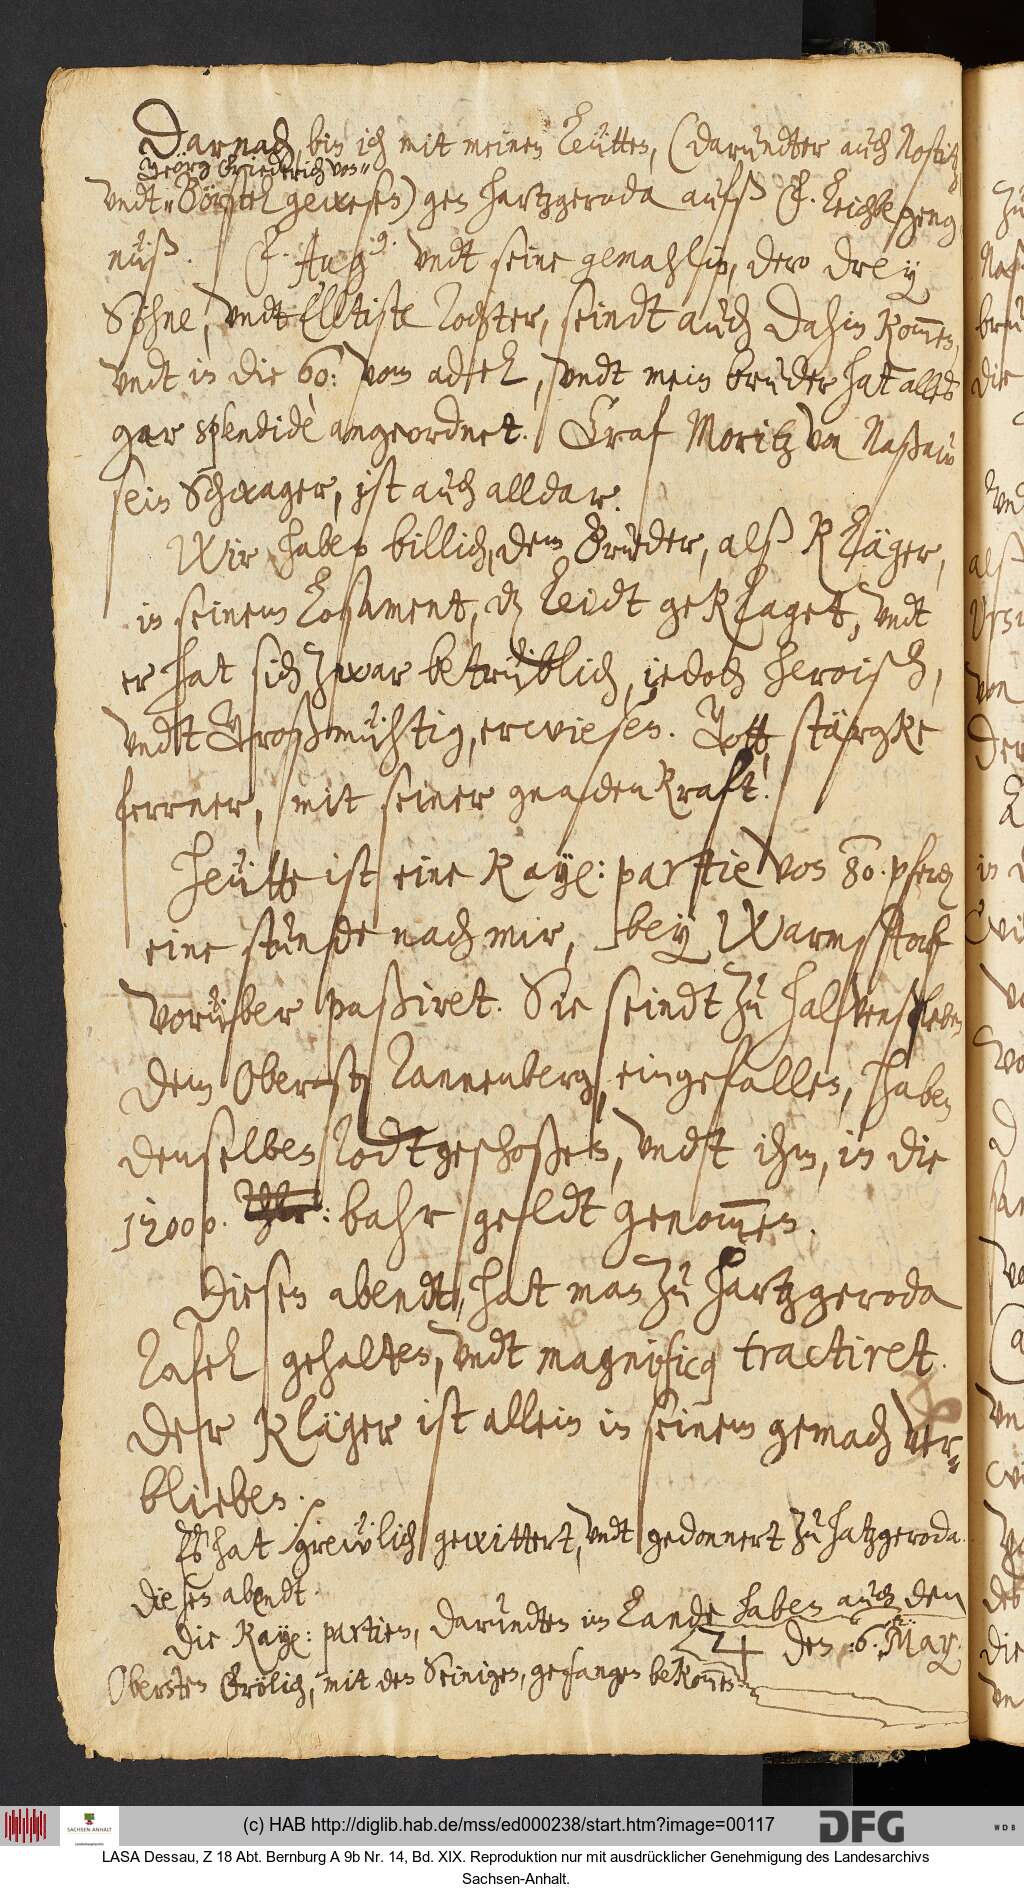 Darnach, bin ich mit meinen Leütten, (darundter auch Nostitz
Georg Friederich von"
vndt" Börstel gewesen) gen Hartzgeroda aufß F. Leichbegeng
nüß. F. Aug: vndt seine gemahlin, dero drey
Söhne, vndt Elltiste Tochter, seindt auch dahin kom̅en,
vndt in die 60: vom adel, vndt mein bruder hat alles
gar splendide angeordnet. Graf Moritz von Naßaw
sein Schwager, ist auch alldar.
Wir haben billich, dem Bruder, alß Kläger,
in seinem Losament, dz Leidt geklaget, vndt
er hat sich zwar betrüblich, iedoch heroisch,
vndt Großmühtig, erwiesen. Gott stärgke
ferrner, mit seiner gnadenkraft!
Heütte ist eine Kay: partie von 80. pferden
eine stunde nach mir, bey Warmstorf
vorüber paßiret. Sie seindt zu Haldensleben
dem Obersten Tannenberg, eingefallen, haben
denselben Todtgeschoßen, vndt ihm, in die
12000. Thlr: bahr geldt genom̅en.
Diesen abendt, hat man zu Hartzgeroda
Tafel gehalten, vndt magnifice tractiret.
Der Kläger ist allein in seinem gemach ver-
blieben.
Es hat grewlich gewittert, vndt gedonnert zu Hatzgeroda
diesen abendt.
Die Kay: partien, darundten im Lande haben auch den
♃ den: 6. May.
Obersten Frölich, mit den Seinigen, gefangen bekom̅en
(c) HAB http://diglib.hab.de/mss/ed000238/start.htm?image=00117
SACHSEN-ANHALT
DFG
WDB
LASA Dessau, Z 18 Abt. Bernburg A 9b Nr. 14, Bd. XIX. Reproduktion nur mit ausdrücklicher Genehmigung des Landesarchivs
Sachsen-Anhalt.